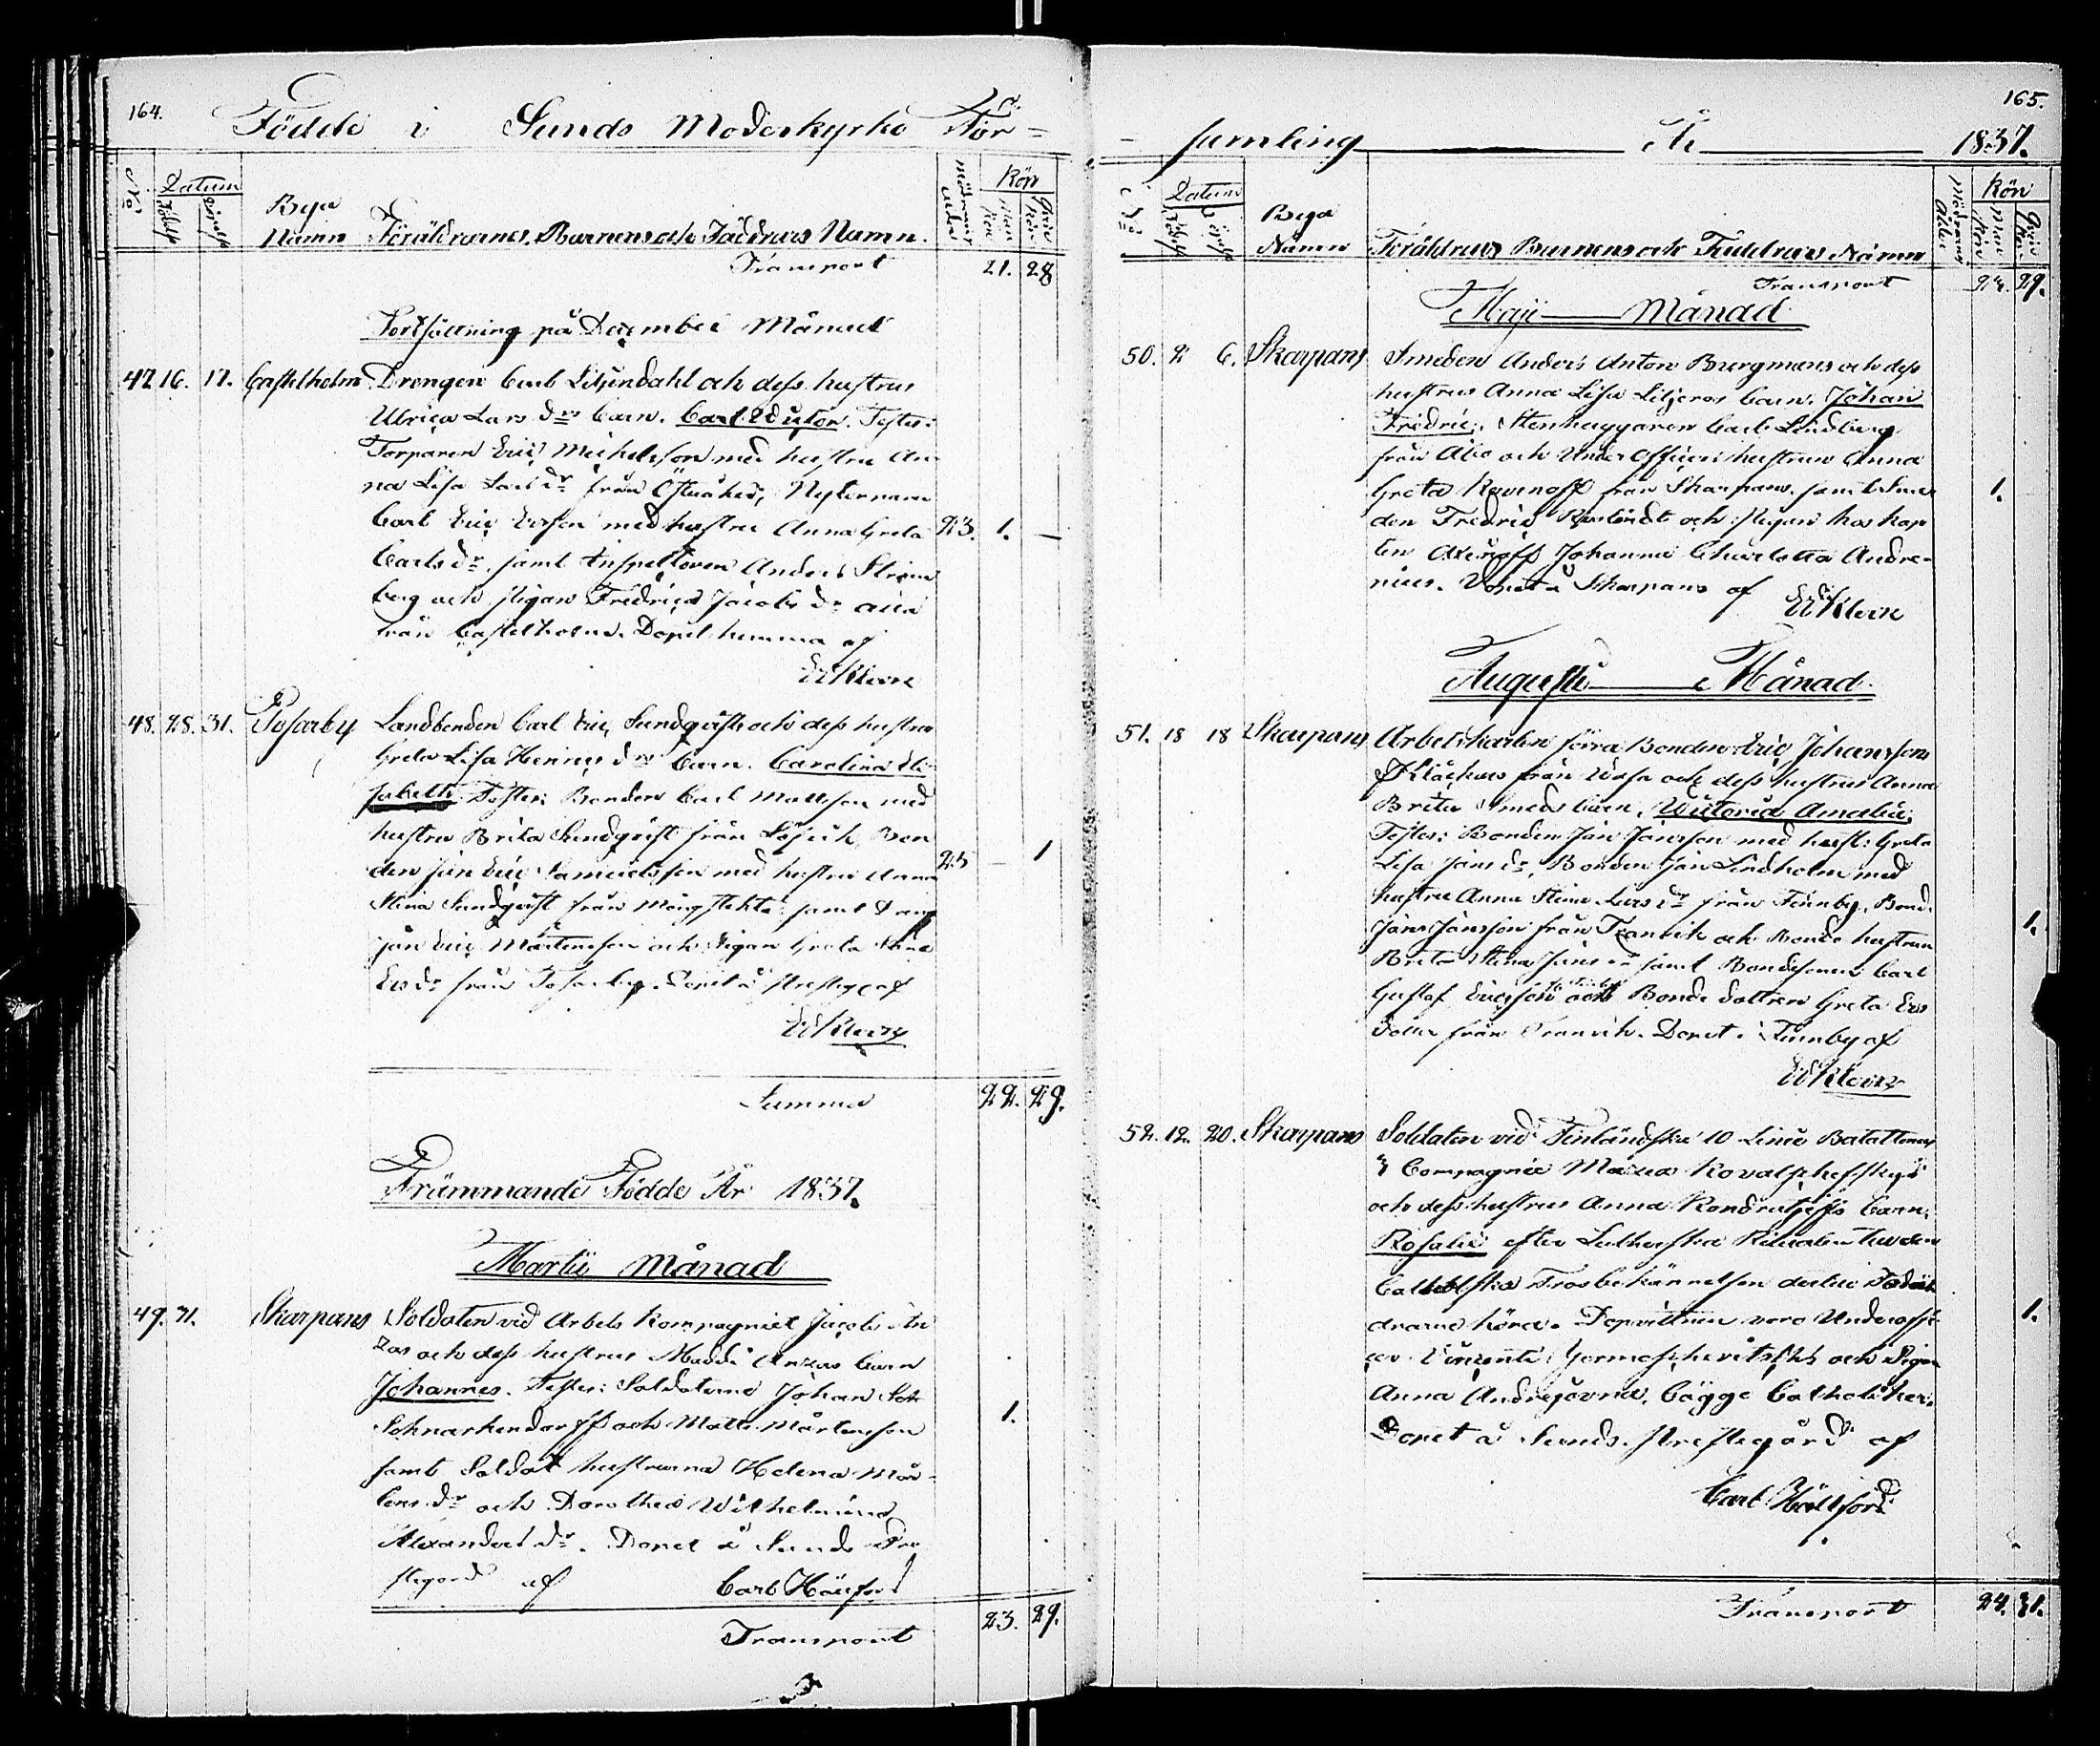 164.
Födde i Sunds Moderkyrko För=
No
Datum
Födelse
Döpelse
Bya
Namn
Föräldrarnes, Barnens och Faddrars Namn.
Mödrarnas
ålder
Kön
Man
kön
Qvin
kön
Transport 21. 28
Fortsättning på December Månad
47. 16. 17. Castelholm Drengen Carl Liljendahl och dess hustrus
Ulrica Lars drs barn. Carl Victor. Testes:
Torparen Eric Michelsson med hustru An
na Lisa Carls dr från Österåker,
Carl Eric Ersson med hustru Anna Greta 23. 1. —
Carls dr, samt Inspectoren Anders Ström
berg och pigan Fredrica Jacobs dr alla
från Castelholm. Döpt hemma af
48. 28. 31. Tosarby Landbonden Carl Eric Sundqvist och dess hustrus
Greta Lisa Henrics drs barn. Carolina Eli
sabeth. Testes: Bonden Carl Mattsson med
hustru Brita Sundqvist från Lofvik, Bon
den Jan Eric Samuelsson med hustru Anna 25 — 1
Stina Sundqvist från Mångstekta samt Dreng
Jan Eric Mårtensson och Pigan Greta Stina
Ers dr från Tosarby. Döpt å Prestg. af
Summa 22. 29.
Främmande Födde År 1837.
Martii Månad
49. 31. Skarpans Soldaten vid Arbets Kompagniet Jacob An
zas och dess hustrus Maddi Anzas barn
Johannes. Testes: Soldaterne Johan
Schnarkendorff och Matts Mårtensson 1.
samt Soldat hustrurna Helena Mår-
tens dr och Dorothea Wilhelmina
Alexanders dr. Döpt å Sunds Pre
stgård af Carl
Transport 23. 29.
165.
- samling År 1837.
No
Datum
Födelse
Döpelse
Bya
Namn
Föräldrars Barnens och Faddrars Namn
Mödrarnas
ålder
Kön
Man
kön
Qvin
kön
Transport 23. 29.
Maji Månad
50. 2 6. Skarpans Smeden Anders Anton Bergmans och dess
hustrus Anna Lisa Liljeros barn. Johan
Fredric. Stenhuggaren Carl Lindberg
från Åbo och Under Officers hustrun Anna
Greta från Skarpans, samt Sme 1.
den Fredric och pigan hos Kap
ten Johanna Charlotta Andre-
Döpt å Skarpans af
Augusti Månad
51. 18 18 Skarpans Arbetskarlen förra Bonden Eric Johansson
från Wasa och dess hustrus Anna
Brita Smeds barn. Victoria Amalia,
Testes: Bonden Jan Jansson med hust: Greta
Lisa Jans dr, Bonden Jan Lindholm med
hustru Anna Stina Lars dr från Finnby, Bond.
Jan Jansson från Tranvik och Bonde hustrun 1.
Brita Stina Jans dr samt Bondesonen Carl
Gustaf Ericsson och Bonde dottren Greta Ers
dotter från Tranvik. Döpt i Finnby af
52. 12. 20. Skarpans Soldaten vid Finländska 10 Linie Bataillonen
3 Compagnie Kovalscheffsky
och dess hustrus Anna Kondratjeffs barn.
Rosalie efter Lutherska Ritualen till den
Catholska Trosbekännelsen
höra. Dopvittnen voro Underoffi- 1.
Vincenti Jermoscheritsch och Pigan
Anna Andrejovna, bägge Catholiker.
Döpt å Sunds Prestegård af
Carl
Transport 24. 31.